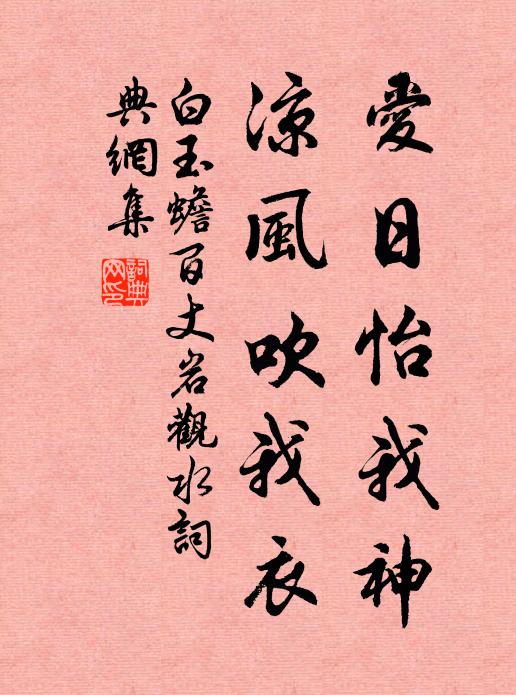 愛日怡我神
涼風吹我衣
白玉蟾百丈岩觀水詞
典網集
詞典
网印